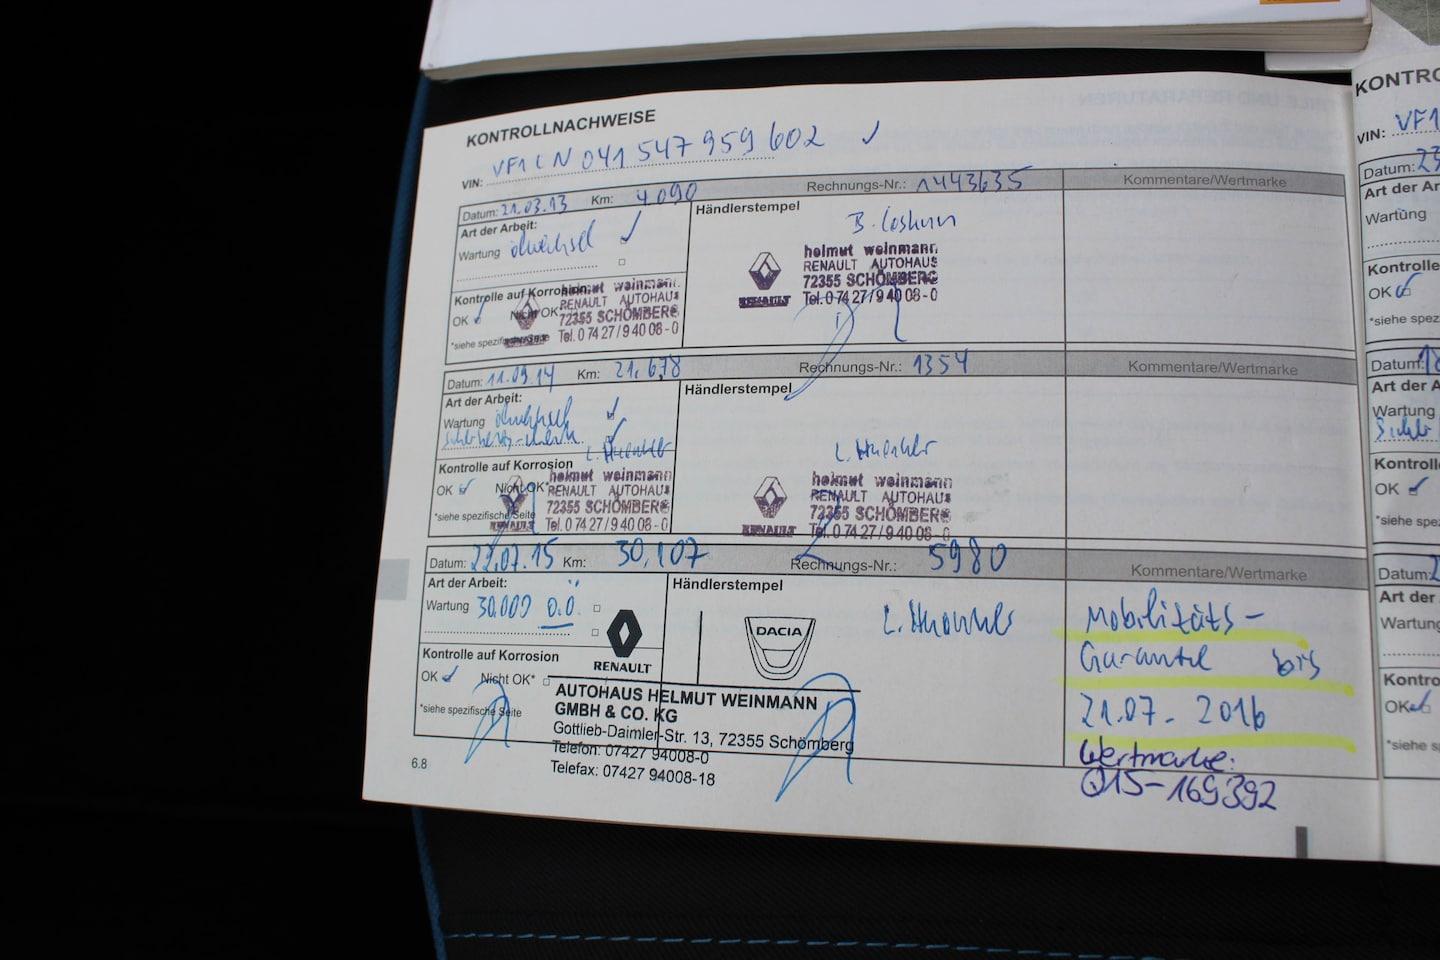 KONTROLLNACHWEISE
VIN: VF1LN041547959602 ✓
Datum: 21.03.13 Km: 4090 Rechnungs-Nr.: 1443635 Kommentare/Wertmarke
Art der Arbeit:
Wartung Ölwechsel ✓
Händlerstempel
B. Coskun
helmut weinmann
RENAULT AUTOHAUS
72355 SCHÖMBERG
Tel. 0 74 27 / 9 40 08 - 0
RENAULT
Kontrolle auf Korrosion
OK ✓ Nicht OK*
*siehe spezifische Seite
helmut weinmann
RENAULT AUTOHAUS
72355 SCHÖMBERG
Tel. 0 74 27 / 9 40 08 - 0
Datum: 11.09.14 Km: 21.678 Rechnungs-Nr.: 1354 Kommentare/Wertmarke
Art der Arbeit:
Wartung Ölwechsel ✓
Händlerstempel
Kontrolle auf Korrosion
OK ✓ Nicht OK*
*siehe spezifische Seite
helmut weinmann
RENAULT AUTOHAUS
72355 SCHÖMBERG
Tel. 0 74 27 / 9 40 08 - 0
helmut weinmann
RENAULT AUTOHAUS
72355 SCHÖMBERG
Tel. 0 74 27 / 9 40 08 - 0
RENAULT
Datum: 22.07.15 Km: 30.107 Rechnungs-Nr.: 5980 Kommentare/Wertmarke
Art der Arbeit:
Wartung 30.000 o.Ö.
Händlerstempel
RENAULT
DACIA
Kontrolle auf Korrosion
OK ✓ Nicht OK*
*siehe spezifische Seite
AUTOHAUS HELMUT WEINMANN
GMBH & CO. KG
Gottlieb-Daimler-Str. 13, 72355 Schömberg
Telefon: 07427 94008-0
Telefax: 07427 94008-18
Mobilitäts-
Garantie bis
21.07. 2016
Wertmarke:
Q15-169392
6.8
KONTRO
VIN: VF1
Datum: 23
Art der Ar
Wartung
Kontrolle
OK ✓
*siehe spez
Datum: 18
Art der A
Wartung
Kontroll
OK ✓
*siehe spe
Datum: 2
Art der
Wartung
Kontro
OK ✓
*siehe s